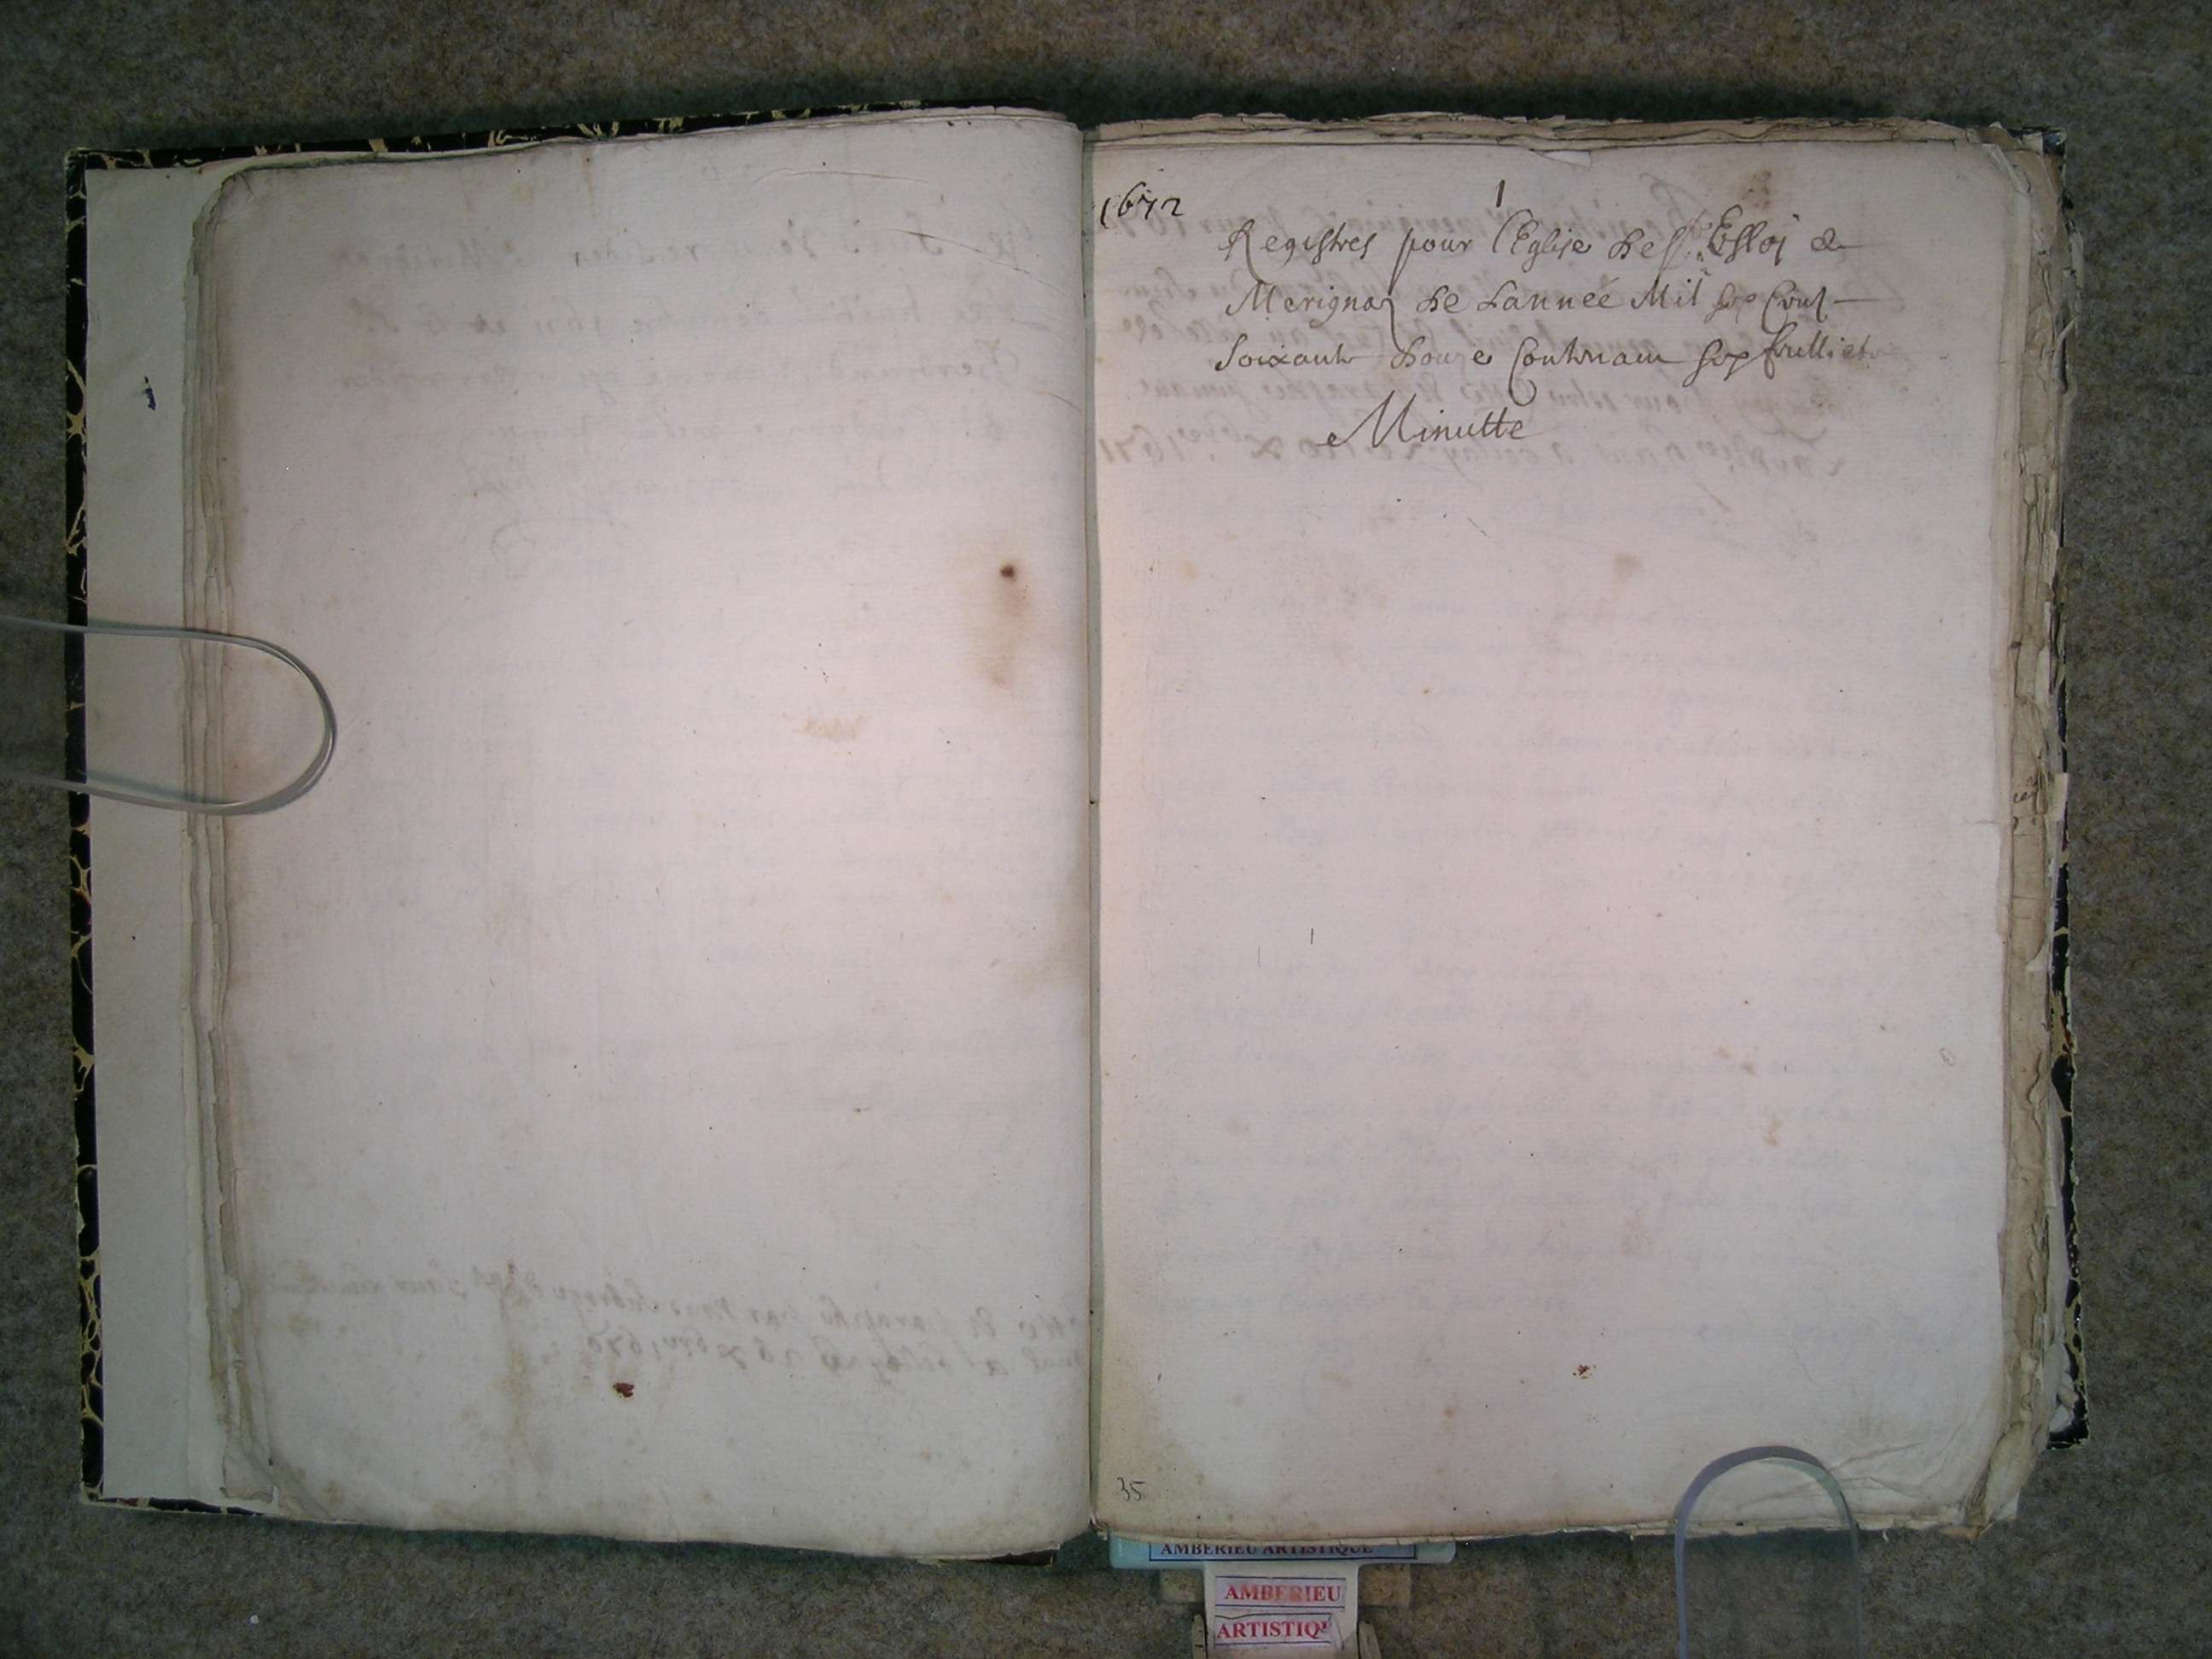 1672
1
Registres pour l'Eglise de St Esloj de
Merignaz de Lannee Mil six Cent
Soixante douze Contenant six feulliets
Minutte
35
AMBERIEU ARTISTIQUE
AMBERIEU
ARTISTIQU